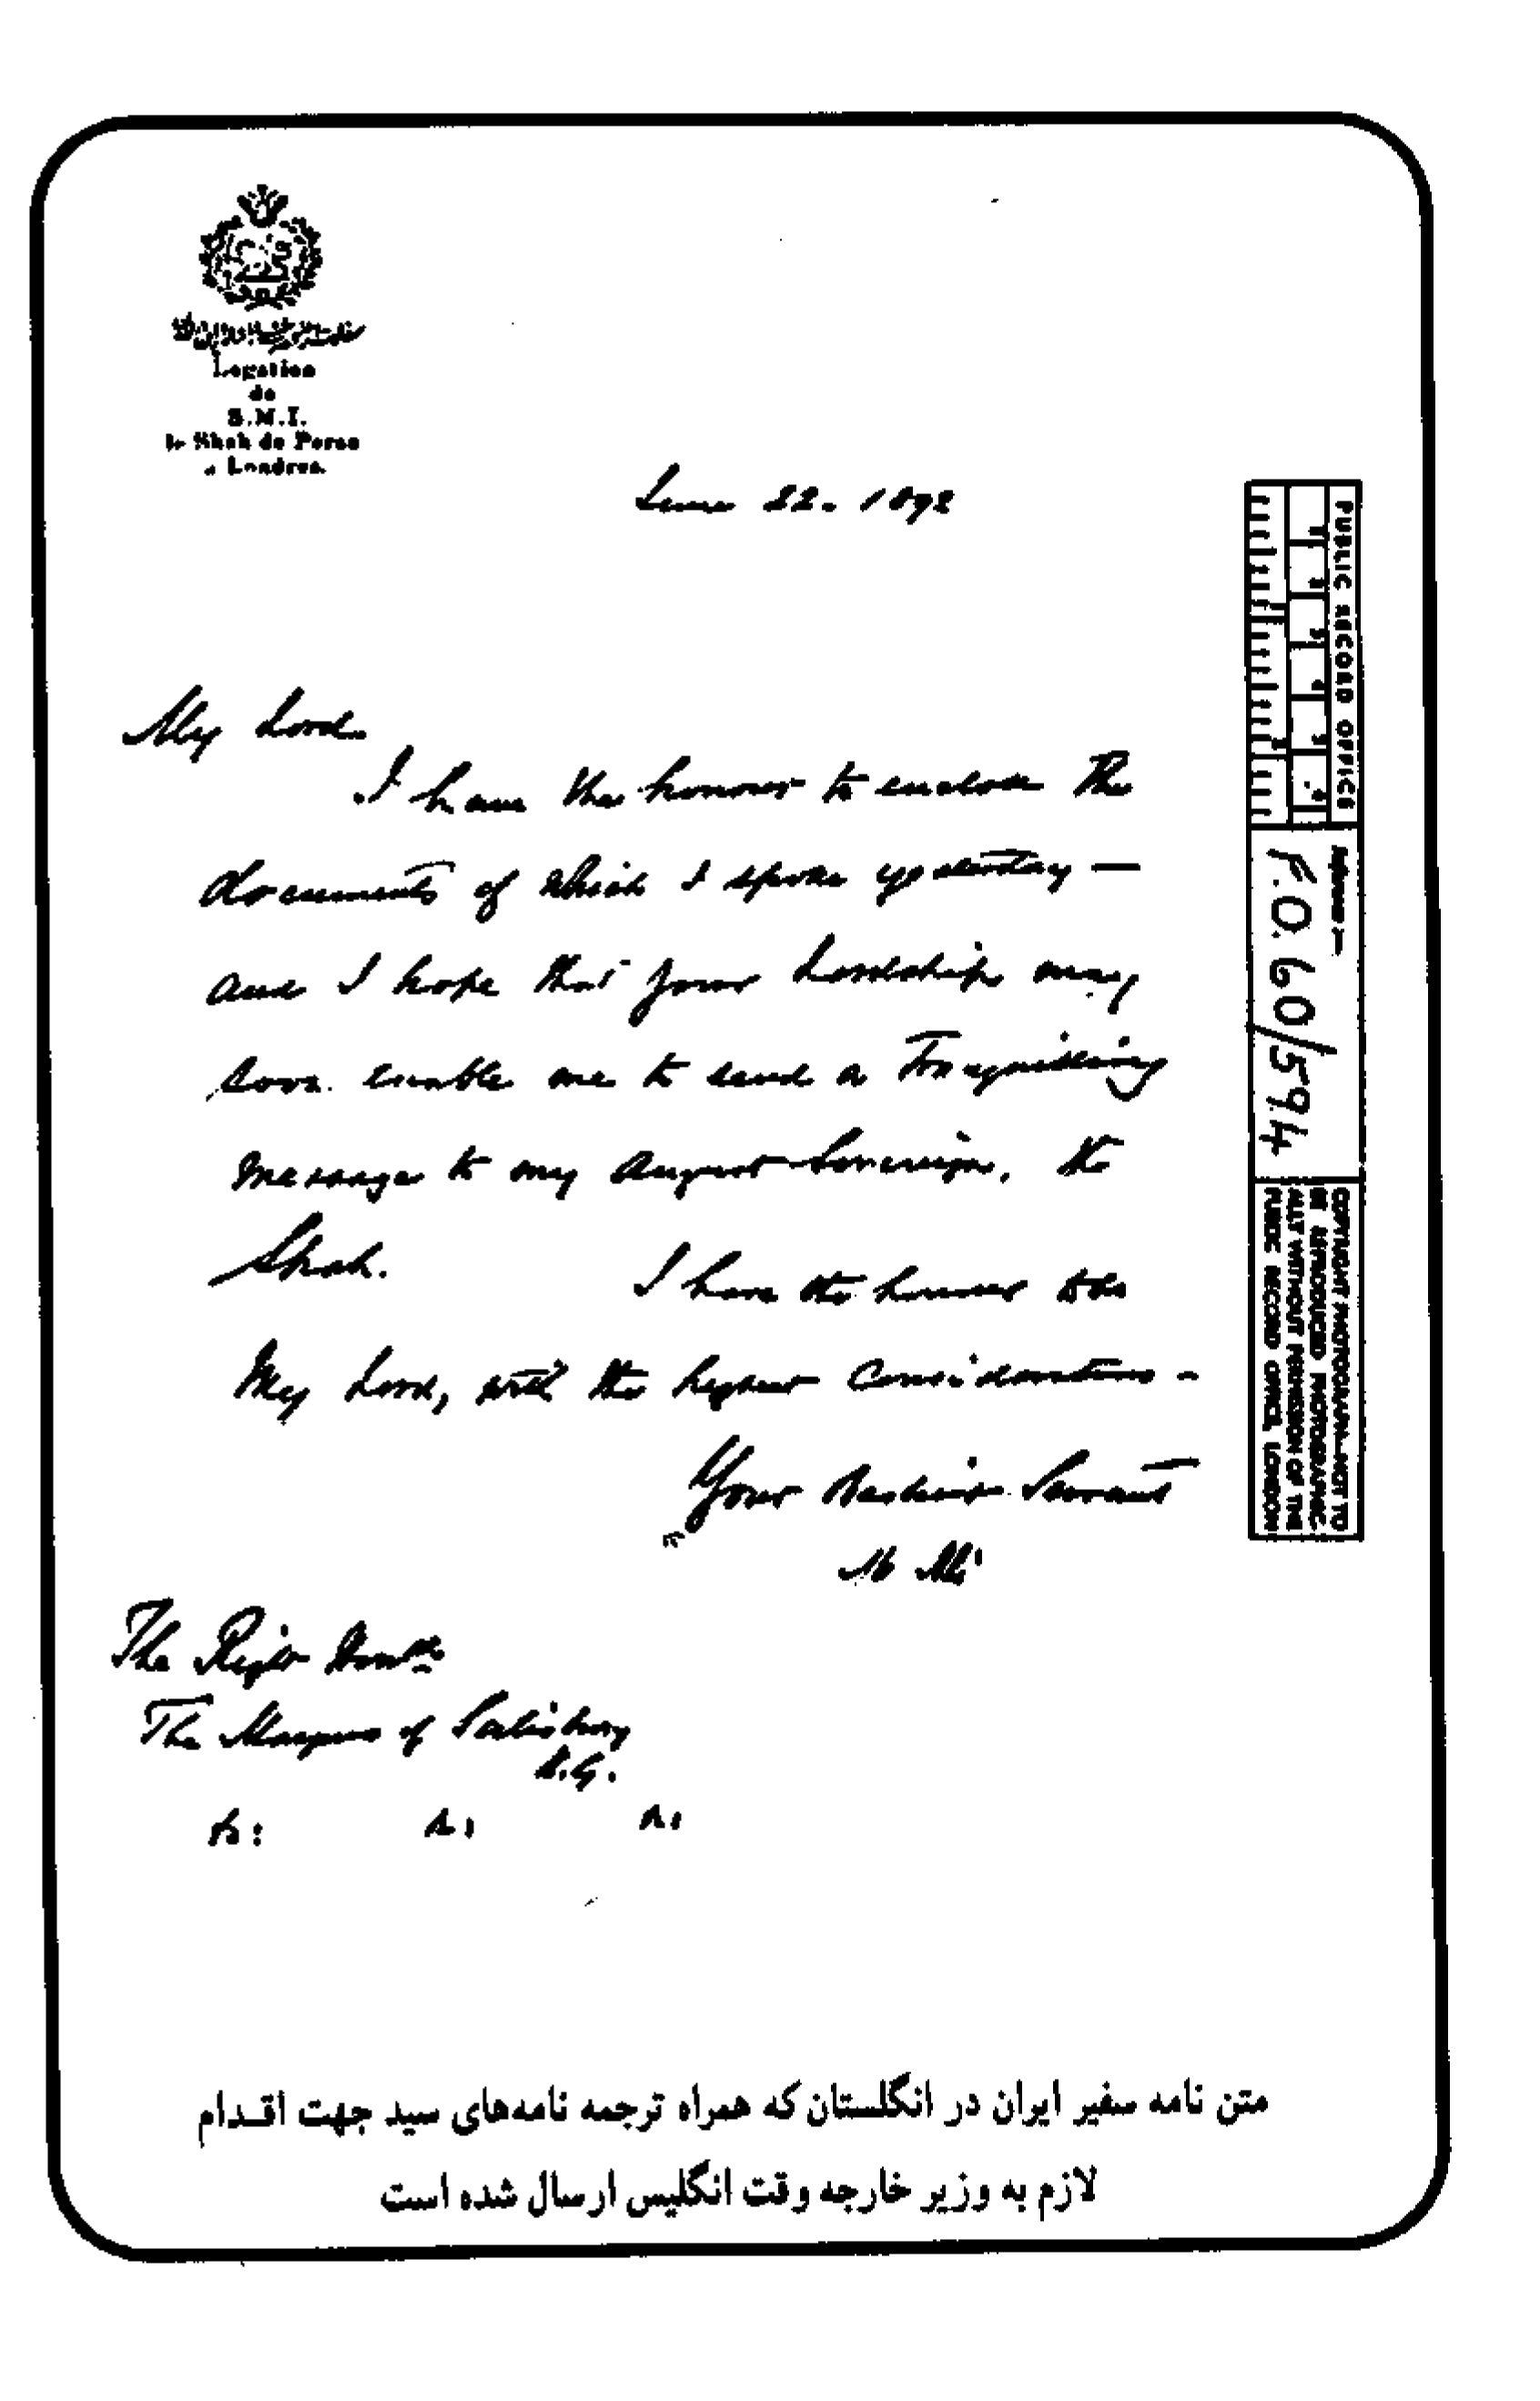 Legation
de
S.M.I.
le Shah de Perse
a Londres.
June 22. 1892
My Lord.
I have the honour to enclose the
documents of which I spoke yesterday —
and I hope that your Lordship may
soon enable me to send a Tranquilising
message to my august Sovereign, the
Shah.
I have the honour to be
My Lord, with the highest Consideration -
Your Servant
The Right Honble
The Marquis of Salisbury
K.G.
PUBLIC RECORD OFFICE
1 2 3 4 5 6
Reference :-
F.O. 60/594
COPYRIGHT PHOTOGRAPH—NOT TO
BE REPRODUCED PHOTOGRAPHIC-
ALLY WITHOUT PERMISSION OF THE
PUBLIC RECORD OFFICE, LONDON
متن نامه سفیر ایران در انگلستان که همراه ترجمه نامه‌های سید جهت اقـدام
لازم به وزیر خارجه وقت انگلیس ارسال شده است